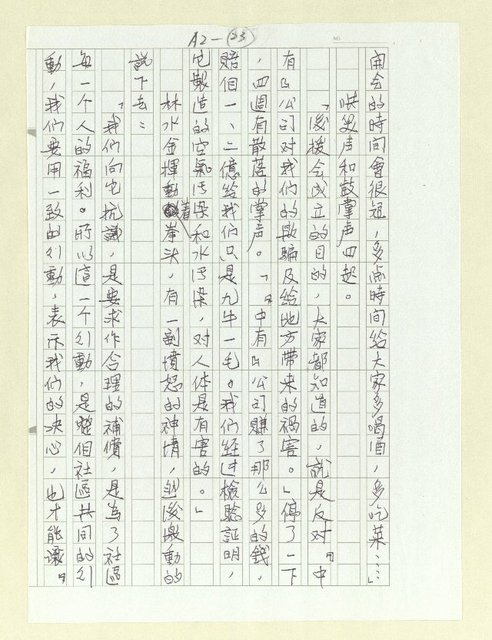 A2-23
開会的時间會很短，多点時间給大家多喝酒，多吃菜……」
哄笑声和鼓掌声四起。
「後援会成立的目的，大家都知道的，就是反对『中
有』公司对我们的欺騙及給地方帶來的禍害。」停了一下
，四週有散落的掌声。「『中有』公司賺了那么多的錢，
賠個一、二億給我们只是九牛一毛。我们経过檢驗証明，
它製造的空氣污染和水污染，对人体是有害的。」
林水金揮動着拳头，有一副憤怒的神情，然後激動的
說下去：
「我们向它抗議，是要求作合理的補償，是為了社區
每一个人的福利。所以這一个行動，是整個社區共同的行
動，我们要用一致的行動，表示我们的決心，也才能讓『